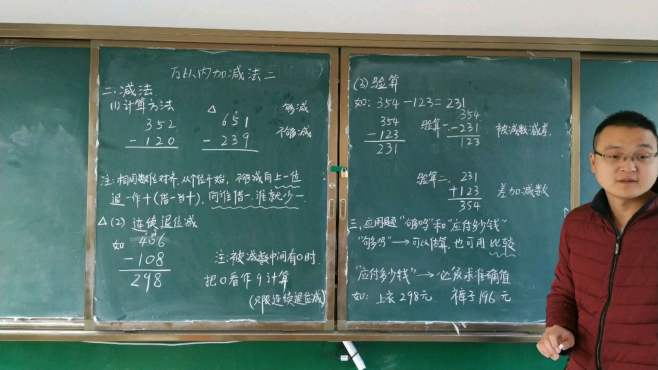 万以内加减法二
二、减法
(1)计算方法
352
-120
△ 651
-239
够减
不够减
注:相同数位对齐,从个位开始,不够减向上一位
退一作十(借一当十),向谁借一,谁就少一
△(2) 连续退位减
如 406
-108
298
注:被减数中间有0时,
把0看作9计算
(只限连续退位减)
(3)验算
如:354-123=231
354
-123
231
验算一 354
-231
123
被减数-减差
验算二、 231
+123
354
差加减数
三、应用题“够吗”和“应付多少钱”
“够吗”→可以估算,也可用比较
“应付多少钱”→必须求准确值
如:上衣298元 裤子196元